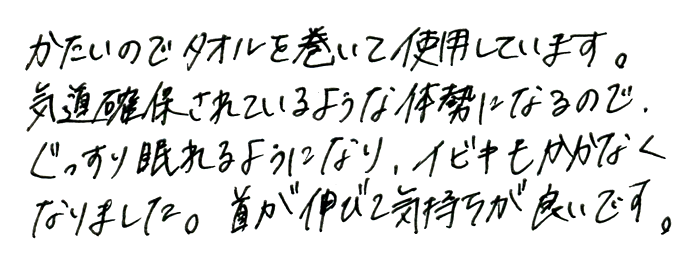 かたいのでタオルを巻いて使用しています。
気道確保されているような体勢になるので、
ぐっすり眠れるようになり、イビキもかかなく
なりました。首が伸びて気持ちが良いです。